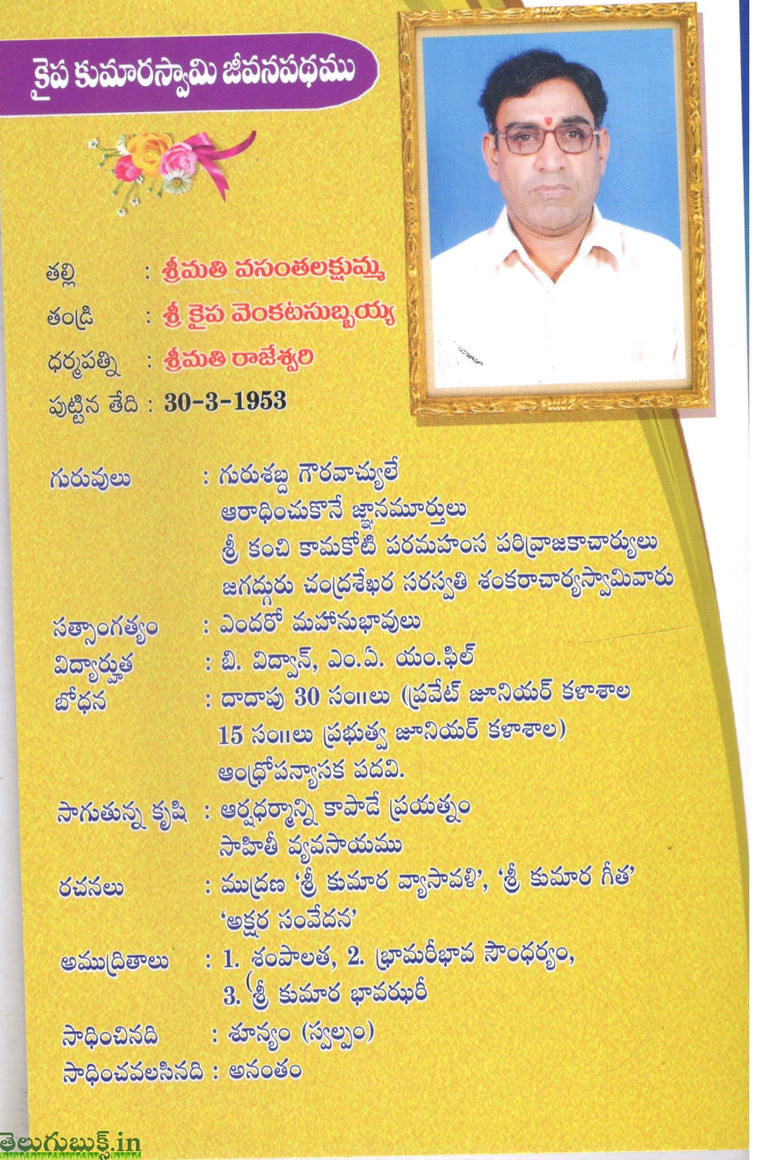 కైప కుమారస్వామి జీవనపథము
తల్లి : శ్రీమతి వసంతలక్షుమ్మ
తండ్రి : శ్రీ కైప వెంకటసుబ్బయ్య
ధర్మపత్ని : శ్రీమతి రాజేశ్వరి
పుట్టిన తేది : 30-3-1953
గురువులు : గురుశబ్ద గౌరవాచ్యులే
ఆరాధించుకొనే జ్ఞానమూర్తులు
శ్రీ కంచి కామకోటి పరమహంస పరివ్రాజకాచార్యులు
జగద్గురు చంద్రశేఖర సరస్వతి శంకరాచార్యస్వామివారు
సత్సాంగత్యం : ఎందరో మహానుభావులు
విద్యార్హత : బి. విద్వాన్, ఎం.ఏ. యం.ఫిల్
బోధన : దాదాపు 30 సం॥లు (ప్రవేట్ జూనియర్ కళాశాల
15 సం॥లు ప్రభుత్వ జూనియర్ కళాశాల)
ఆంధ్రోపన్యాసక పదవి.
సాగుతున్న కృషి : ఆర్షధర్మాన్ని కాపాడే ప్రయత్నం
సాహితీ వ్యవసాయము
రచనలు : ముద్రణ ‘శ్రీ కుమార వ్యాసావళి’, ‘శ్రీ కుమార గీత’
‘అక్షర సంవేదన’
అముద్రితాలు : 1. శంపాలత, 2. భ్రామరీభావ సౌంధర్యం,
3. శ్రీ కుమార భావఝరీ
సాధించినది : శూన్యం (స్వల్పం)
సాధించవలసినది : అనంతం
తెలుగుబుక్స్.in